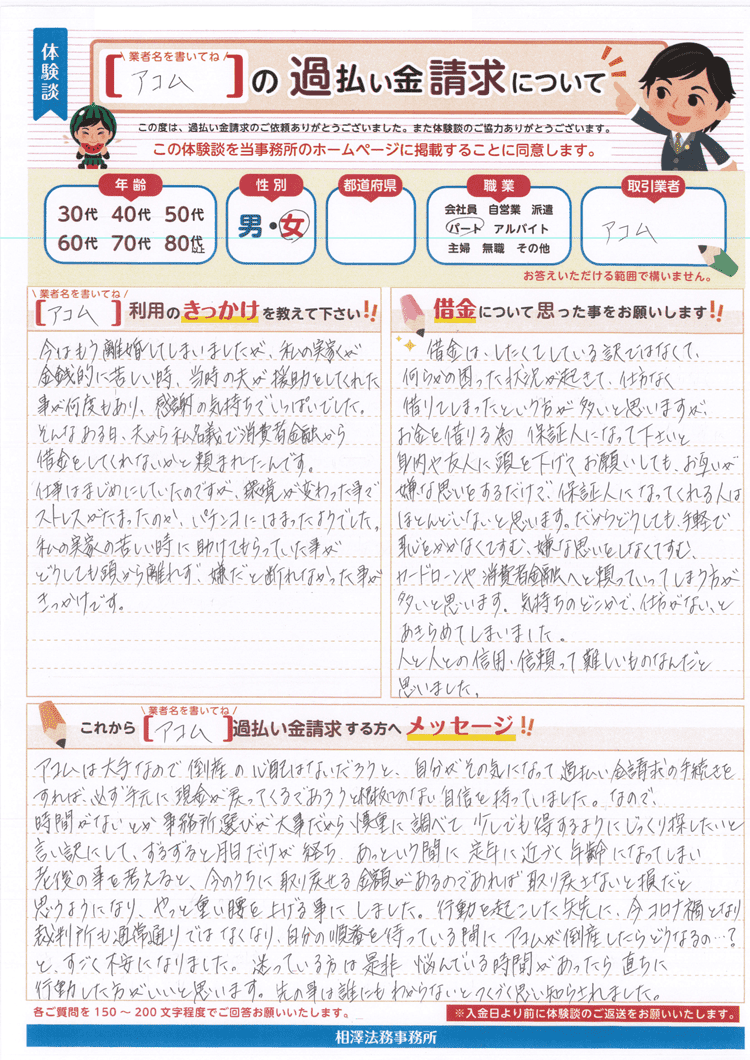 体験談
業者名を書いてね
【アコム】の過払い金請求について
この度は、過払い金請求のご依頼ありがとうございました。また体験談のご協力ありがとうございます。
この体験談を当事務所のホームページに掲載することに同意します。
年齢
30代 40代 50代
60代 70代 80代以上
性別
男・女
都道府県
職業
会社員 自営業 派遣
パート アルバイト
主婦 無職 その他
取引業者
アコム
お答えいただける範囲で構いません。
業者名を書いてね
【アコム】利用のきっかけを教えて下さい!!
今はもう離婚してしまいましたが、私の実家が
金銭的に苦しい時、当時の夫が援助をしてくれた
事が何度もあり、感謝の気持ちでいっぱいでした。
そんなある日、夫から私名義で消費者金融から
借金をしてくれないかと頼まれたんです。
仕事はまじめにしていたのですが、環境が変わった事で
ストレスがたまったのか、パチンコにはまったようでした。
私の実家の苦しい時に助けてもらっていた事が
どうしても頭から離れず、嫌だと断れなかった事が
きっかけです。
借金について思った事をお願いします!!
借金は、したくてしている訳ではなくて、
何らかの困った状況が起きて、仕方なく
借りてしまったという方が多いと思いますが、
お金を借りる為 保証人になって下さいと
身内や友人に頭を下げてお願いしても、お互いが
嫌な思いをするだけで、保証人になってくれる人は
ほとんどいないと思います。だからどうしても、手軽で
恥をかかなくてすむ、嫌な思いをしなくてすむ、
カードローンや消費者金融へと頼っていってしまう方が
多いと思います。気持ちのどこかで、仕方がないと
あきらめてしまいました。
人と人との信用・信頼って難しいものなんだと
思いました。
業者名を書いてね
これから【アコム】過払い金請求する方へメッセージ!!
アコムは大手なので倒産の心配はないだろうと、自分がその気になって過払い金請求の手続きを
すれば、必ず手元に現金が戻ってくるであろうと根拠のない自信を持っていました。なので、
時間がないとか事務所選びが大事だから慎重に調べて少しでも得するようにじっくり探したいと
言い訳にして、ずるずると月日だけが経ち、あっという間に定年に近づく年齢になってしまい
老後の事を考えると、今のうちに取り戻せる金額があるのであれば取り戻さないと損だと
思うようになり、やっと重い腰を上げる事にしました。行動を起こした矢先に、今コロナ禍となり
裁判所も通常通りではなくなり、自分の順番を待っている間にアコムが倒産したらどうなるの…?
と、すごく不安になりました。迷っている方は是非 悩んでいる時間があったら直ちに
行動した方がいいと思います。先の事は誰にもわからないとつくづく思い知らされました。
各ご質問を150～200文字程度でご回答お願いいたします。
※入金日より前に体験談のご返送をお願いいたします。
相澤法務事務所